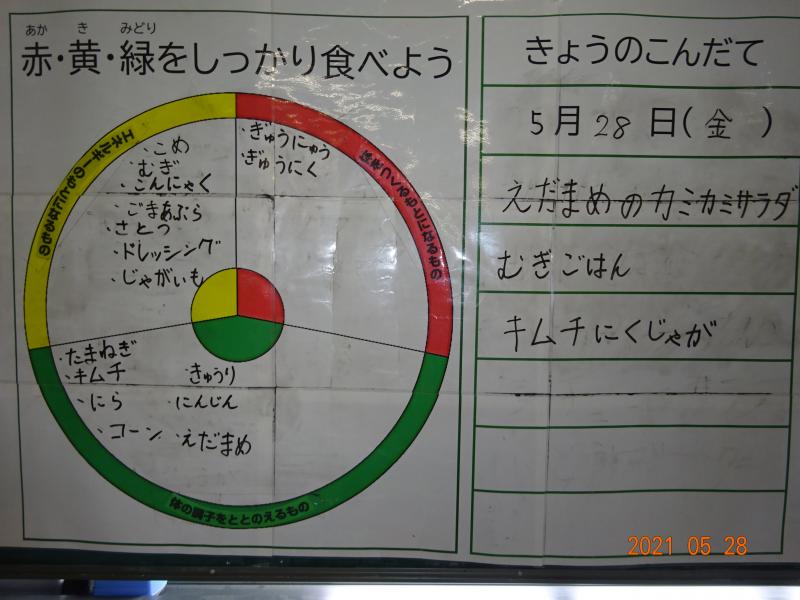 あか き みどり
赤・黄・緑をしっかり食べよう
エネルギーのもとになるもの
・こめ
・むぎ
・こんにゃく
・ごまあぶら
・さとう
・ドレッシング
・じゃがいも
・ぎゅうにゅう
・ぎゅうにく
体をつくるもとになるもの
・たまねぎ
・キムチ ・きゅうり
・にら ・にんじん
・コーン ・えだまめ
体の調子をととのえるもの
きょうのこんだて
5月28日(金)
えだまめのカミカミサラダ
むぎごはん
キムチにくじゃが
2021 05 28